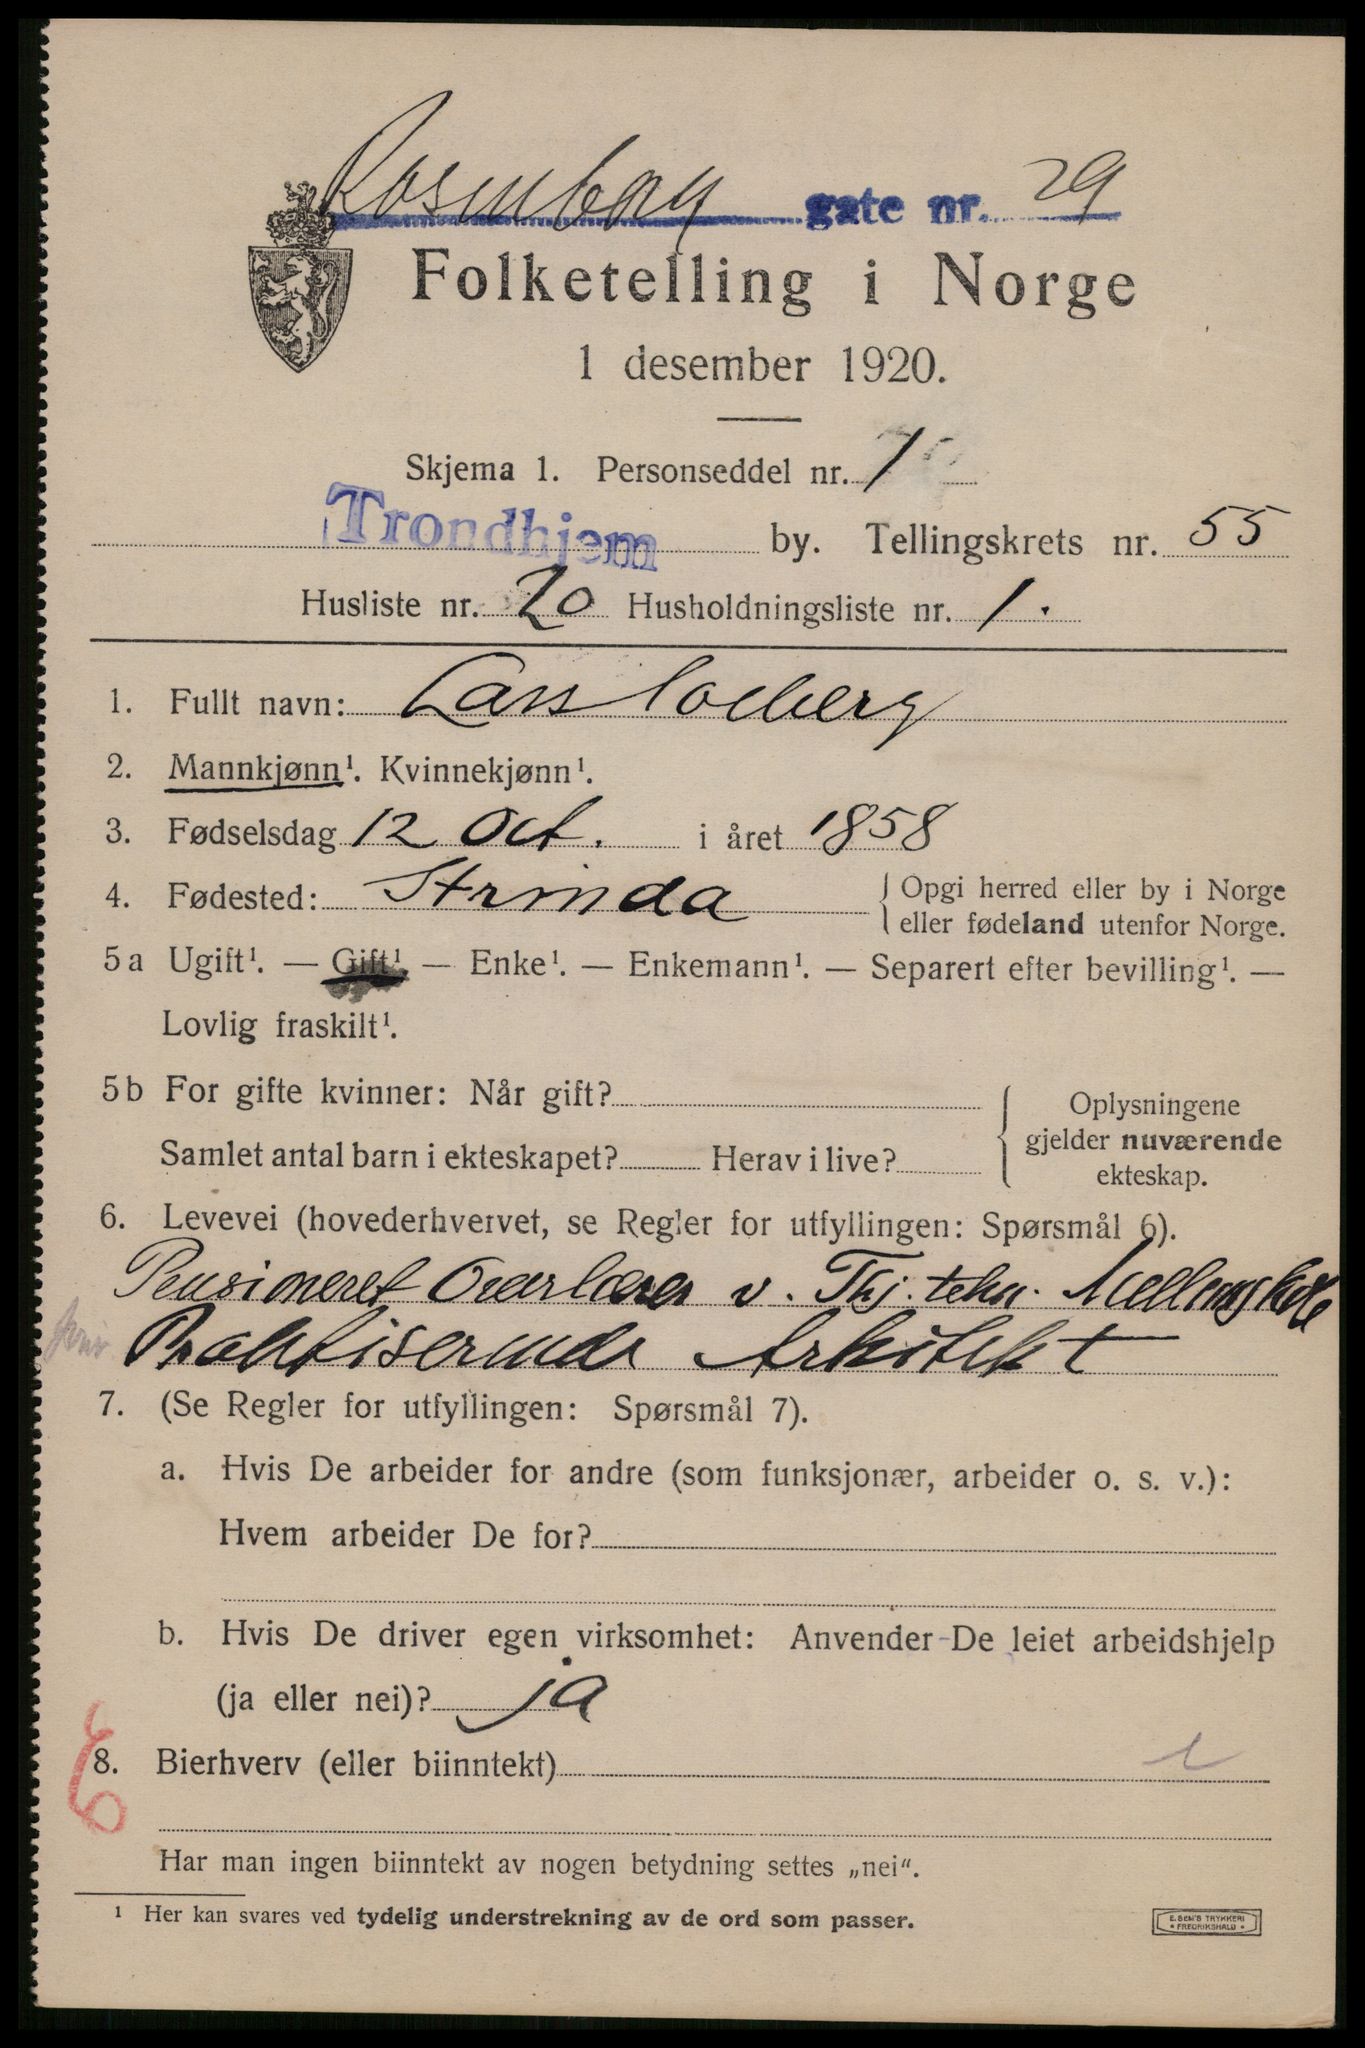 Rosenborg gate nr. 29
Folketelling i Norge
1 desember 1920.
Skjema 1. Personseddel nr. 1
Trondhjem by. Tellingskrets nr. 55
Husliste nr. 20 Husholdningsliste nr. 1.
1. Fullt navn: Lars Solberg
2. Mannkjønn¹. Kvinnekjønn¹.
3. Fødselsdag 12 Oct. i året 1858
4. Fødested: Strinda { Opgi herred eller by i Norge
eller fødeland utenfor Norge.
5 a Ugift¹. — Gift¹ — Enke¹. — Enkemann¹. — Separert efter bevilling¹. —
Lovlig fraskilt¹.
5 b For gifte kvinner: Når gift?
Samlet antal barn i ekteskapet? Herav i live?
{ Oplysningene
gjelder nuværende
ekteskap.
6. Levevei (hovederhvervet, se Regler for utfyllingen: Spørsmål 6).
Pensioneret Overlærer v. Thj. tekn. Mellemskole
Praktiserende Arkitekt
7. (Se Regler for utfyllingen: Spørsmål 7).
a. Hvis De arbeider for andre (som funksjonær, arbeider o. s. v.):
Hvem arbeider De for?
b. Hvis De driver egen virksomhet: Anvender De leiet arbeidshjelp
(ja eller nei)? ja
8. Bierhverv (eller biinntekt)
Har man ingen biinntekt av nogen betydning settes „nei“.
¹ Her kan svares ved tydelig understrekning av de ord som passer.
E. SEM'S TRYKKERI
* FREDRIKSHALD *